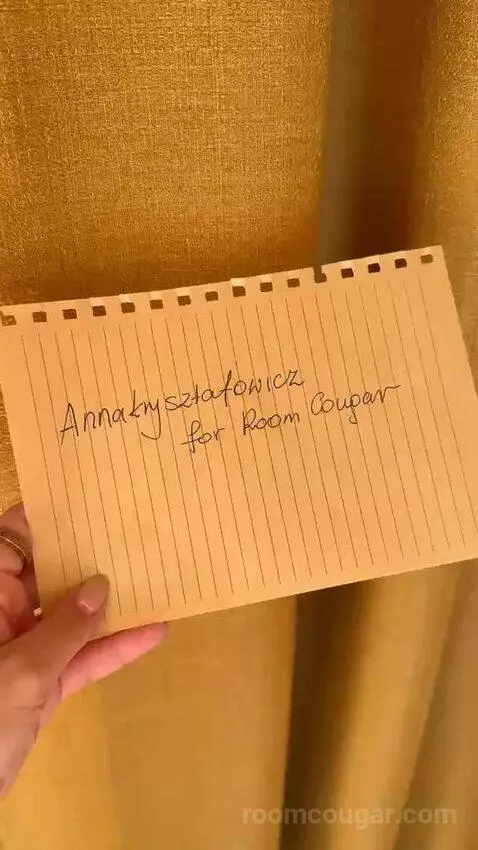 Annakryształowicz
for Room Cougar
roomcougar.com